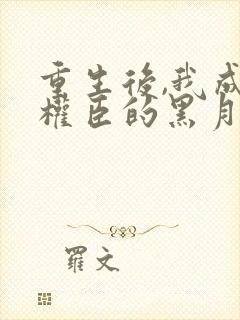 重生後,我成
權臣的黑月
羅文